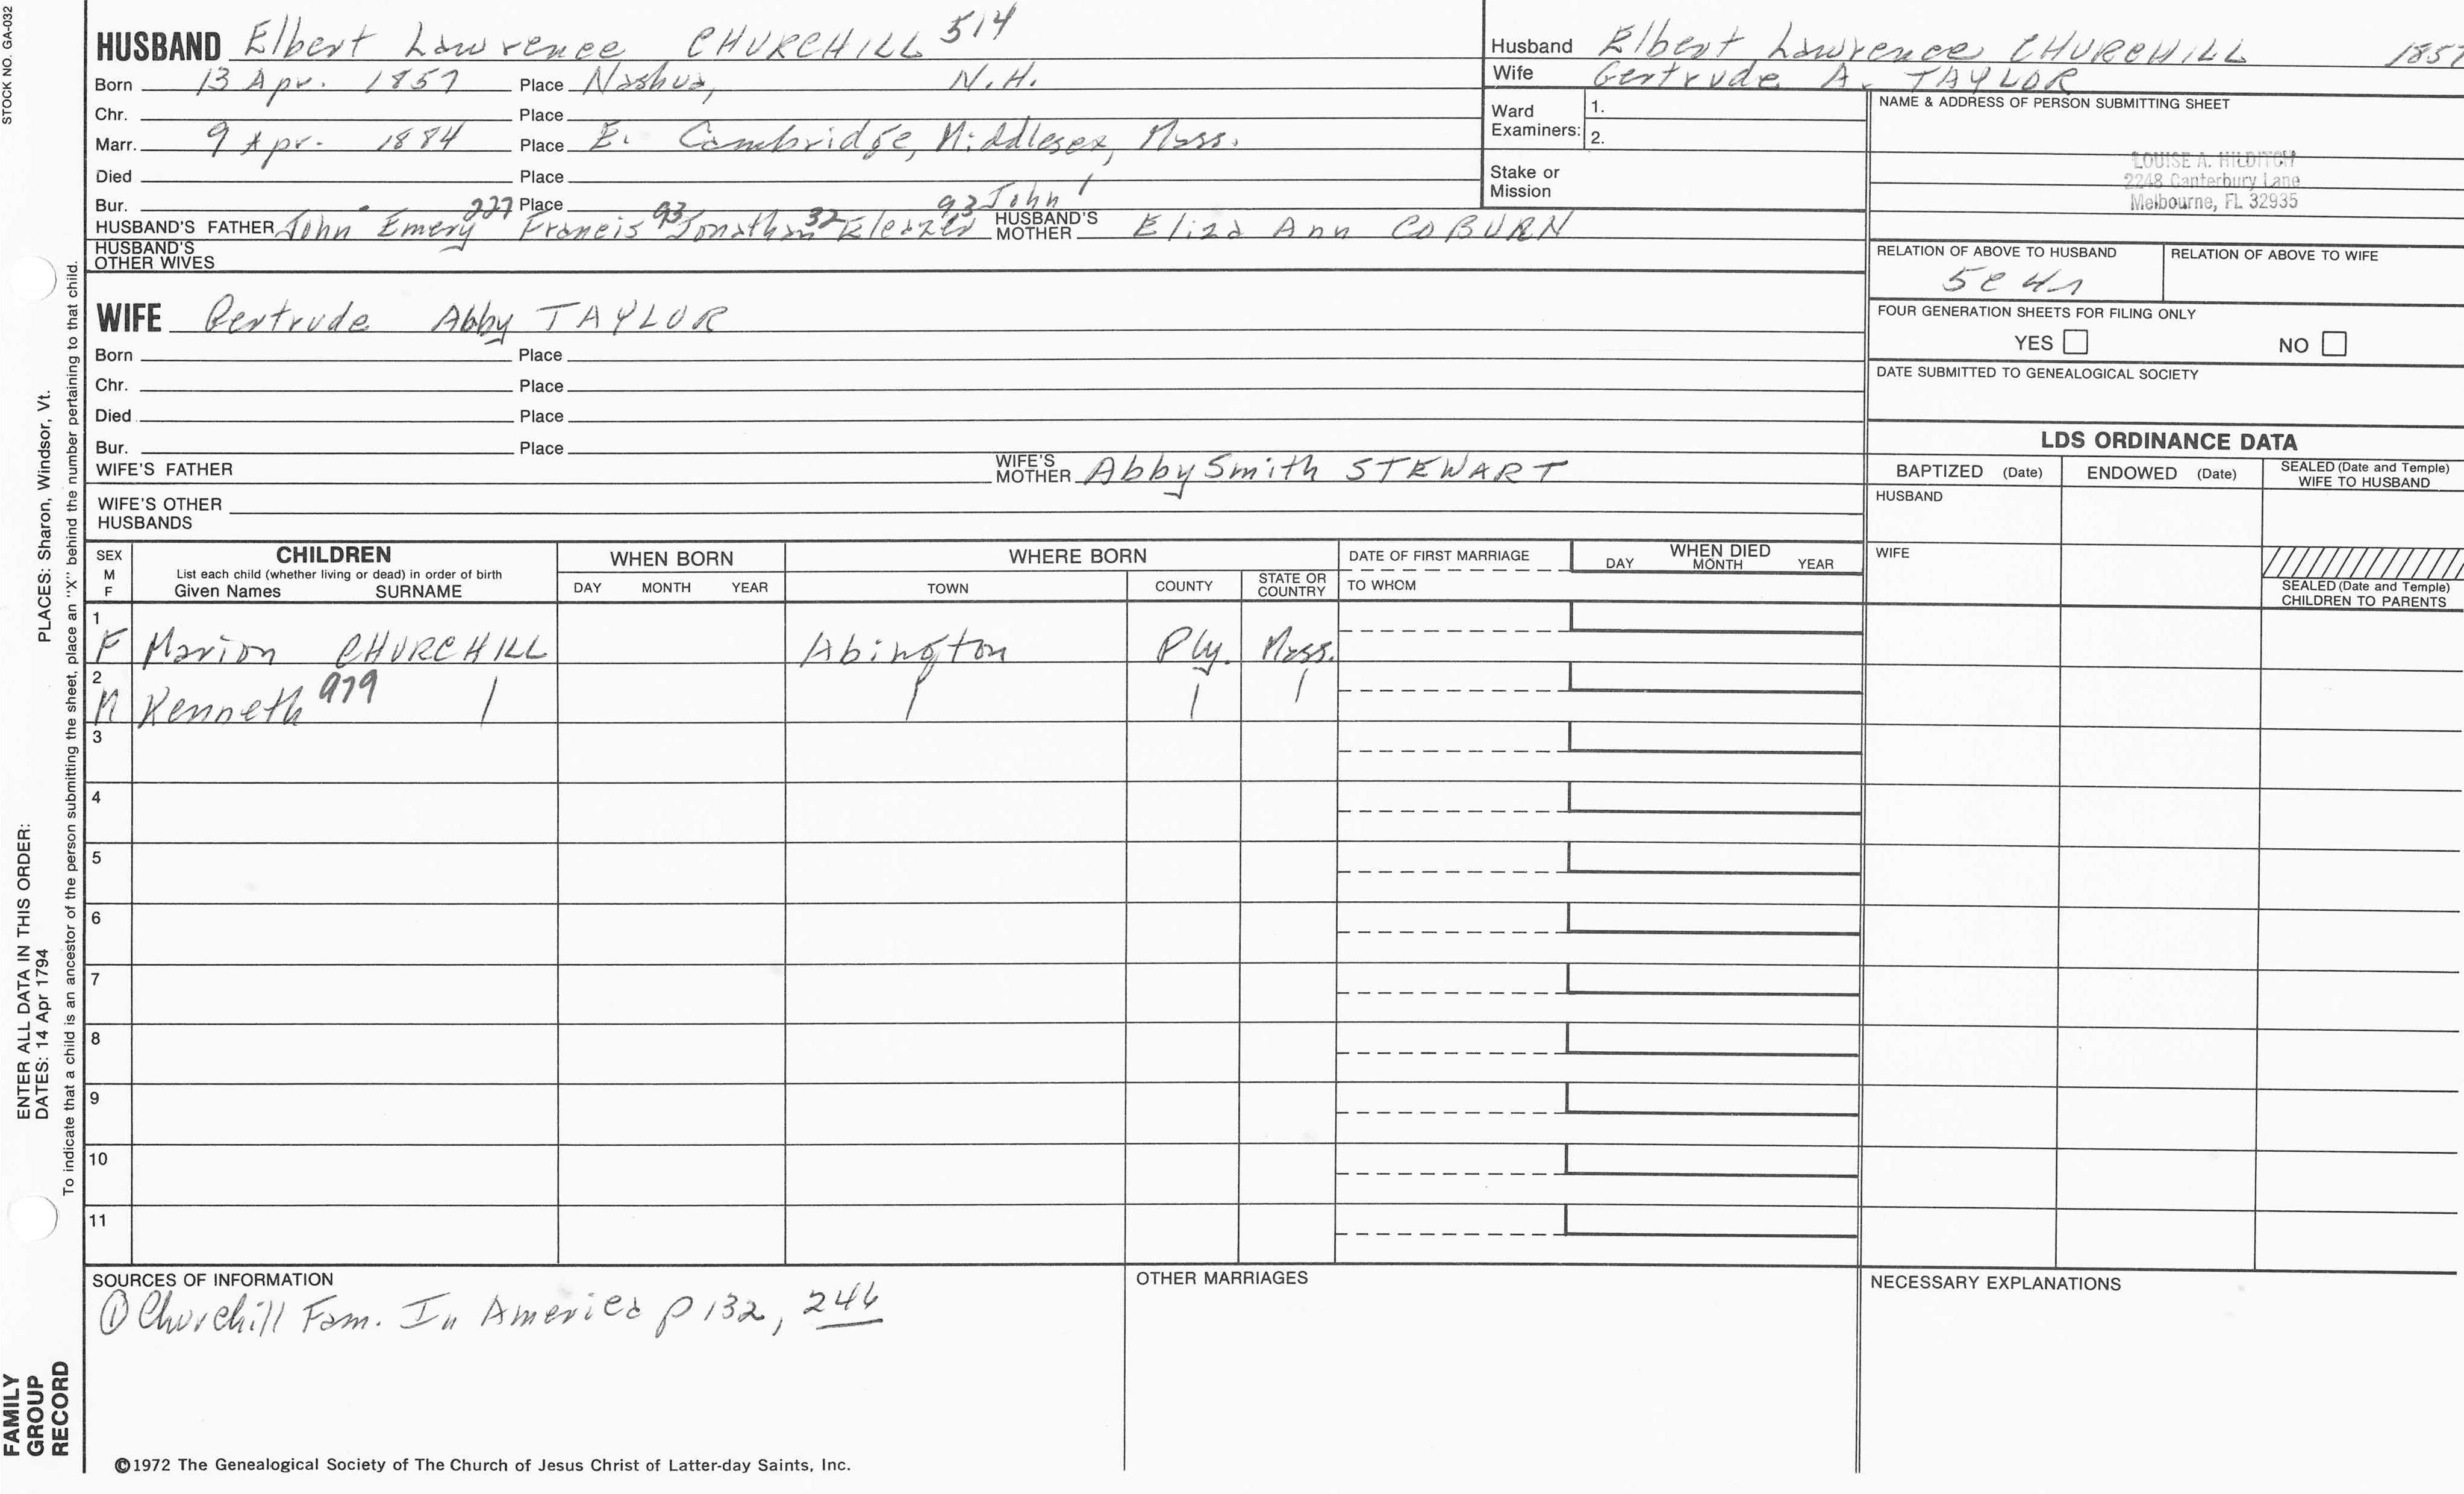 STOCK NO. GA-032
HUSBAND Elbert Lawrence CHURCHILL 514
Born 13 Apr. 1857 Place Nashua, N.H.
Chr. Place
Marr. 9 Apr. 1884 Place E. Cambridge, Middlesex, Mass.
Died Place
Bur. Place
HUSBAND'S FATHER John Emery 227 Francis 93 Jonathan 32 Eleazer 93 John 1 HUSBAND'S MOTHER Eliza Ann COBURN
HUSBAND'S OTHER WIVES
WIFE Gertrude Abby TAYLOR
Born Place
Chr. Place
Died Place
Bur. Place
WIFE'S FATHER WIFE'S MOTHER Abby Smith STEWART
WIFE'S OTHER HUSBANDS
Husband Elbert Lawrence CHURCHILL 1857
Wife Gertrude A. TAYLOR
Ward Examiners: 1.
2.
Stake or Mission
NAME & ADDRESS OF PERSON SUBMITTING SHEET
LOUISE A. HILDITCH
2248 Canterbury Lane
Melbourne, FL 32935
RELATION OF ABOVE TO HUSBAND RELATION OF ABOVE TO WIFE
5c 4r
FOUR GENERATION SHEETS FOR FILING ONLY
YES NO
DATE SUBMITTED TO GENEALOGICAL SOCIETY
LDS ORDINANCE DATA
BAPTIZED (Date) ENDOWED (Date) SEALED (Date and Temple) WIFE TO HUSBAND
HUSBAND
WIFE
SEALED (Date and Temple) CHILDREN TO PARENTS
SEX M F CHILDREN WHEN BORN WHERE BORN DATE OF FIRST MARRIAGE WHEN DIED
List each child (whether living or dead) in order of birth
Given Names SURNAME DAY MONTH YEAR TOWN COUNTY STATE OR COUNTRY TO WHOM DAY MONTH YEAR
1 F Marion CHURCHILL Abington Ply. Mass.
2 M Kenneth 979 | | | |
3
4
5
6
7
8
9
10
11
SOURCES OF INFORMATION
① Churchill Fam. In America p 132, 246
OTHER MARRIAGES
NECESSARY EXPLANATIONS
©1972 The Genealogical Society of The Church of Jesus Christ of Latter-day Saints, Inc.
FAMILY GROUP RECORD
ENTER ALL DATA IN THIS ORDER:
DATES: 14 Apr 1794 PLACES: Sharon, Windsor, Vt.
To indicate that a child is an ancestor of the person submitting the sheet, place an "X" behind the number pertaining to that child.